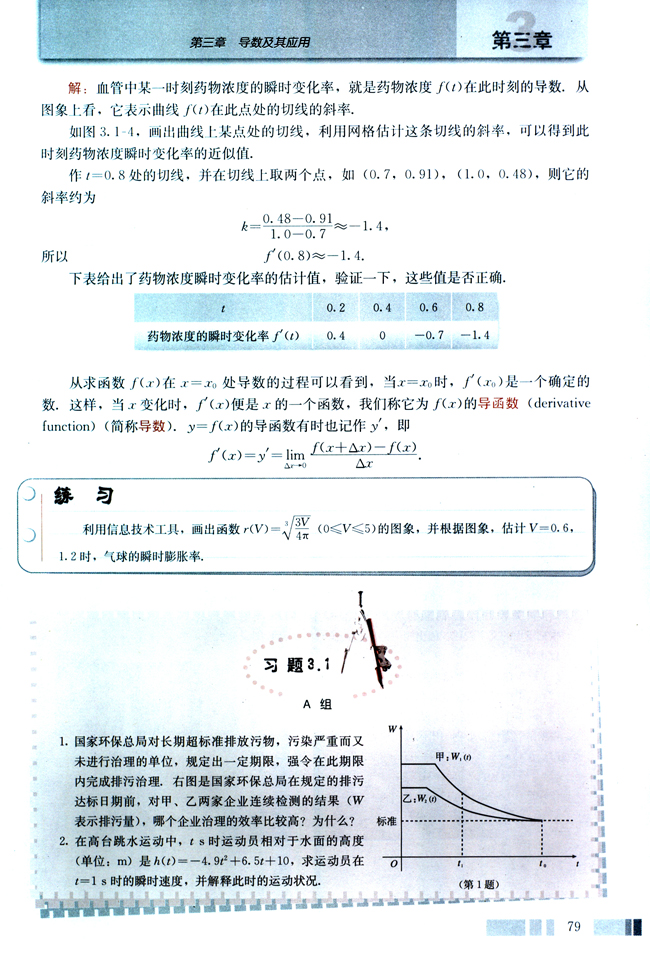 第三章 导数及其应用
第三章
解：血管中某一时刻药物浓度的瞬时变化率，就是药物浓度 f(t)在此时刻的导数. 从
图象上看，它表示曲线 f(t)在此点处的切线的斜率.
如图 3.1-4，画出曲线上某点处的切线，利用网格估计这条切线的斜率，可以得到此
时刻药物浓度瞬时变化率的近似值.
作 t=0.8 处的切线，并在切线上取两个点，如 (0.7，0.91)，(1.0，0.48)，则它的
斜率约为
k=(0.48−0.91)/(1.0−0.7)≈−1.4，
所以 f′(0.8)≈−1.4.
下表给出了药物浓度瞬时变化率的估计值，验证一下，这些值是否正确.
t 0.2 0.4 0.6 0.8
药物浓度的瞬时变化率 f′(t) 0.4 0 −0.7 −1.4
从求函数 f(x)在 x=x₀ 处导数的过程可以看到，当x=x₀时，f′(x₀)是一个确定的
数. 这样，当 x 变化时，f′(x)便是 x 的一个函数，我们称它为 f(x)的导函数 (derivative
function) (简称导数). y=f(x)的导函数有时也记作 y′，即
f′(x)=y′=lim Δx→0 (f(x+Δx)−f(x))/Δx.
练 习
利用信息技术工具，画出函数 r(V)=∛(3V/4π) (0≤V≤5)的图象，并根据图象，估计 V=0.6，
1.2 时，气球的瞬时膨胀率.
习 题 3.1
A 组
1. 国家环保总局对长期超标准排放污物，污染严重而又
未进行治理的单位，规定出一定期限，强令在此期限
内完成排污治理. 右图是国家环保总局在规定的排污
达标日期前，对甲、乙两家企业连续检测的结果 (W
表示排污量)，哪个企业治理的效率比较高？为什么？
2. 在高台跳水运动中，t s 时运动员相对于水面的高度
(单位：m) 是 h(t)=−4.9t²+6.5t+10，求运动员在
t=1 s 时的瞬时速度，并解释此时的运动状况.
W
甲：W₁(t)
乙：W₂(t)
标准
O t₁ t₀ t
(第 1 题)
79